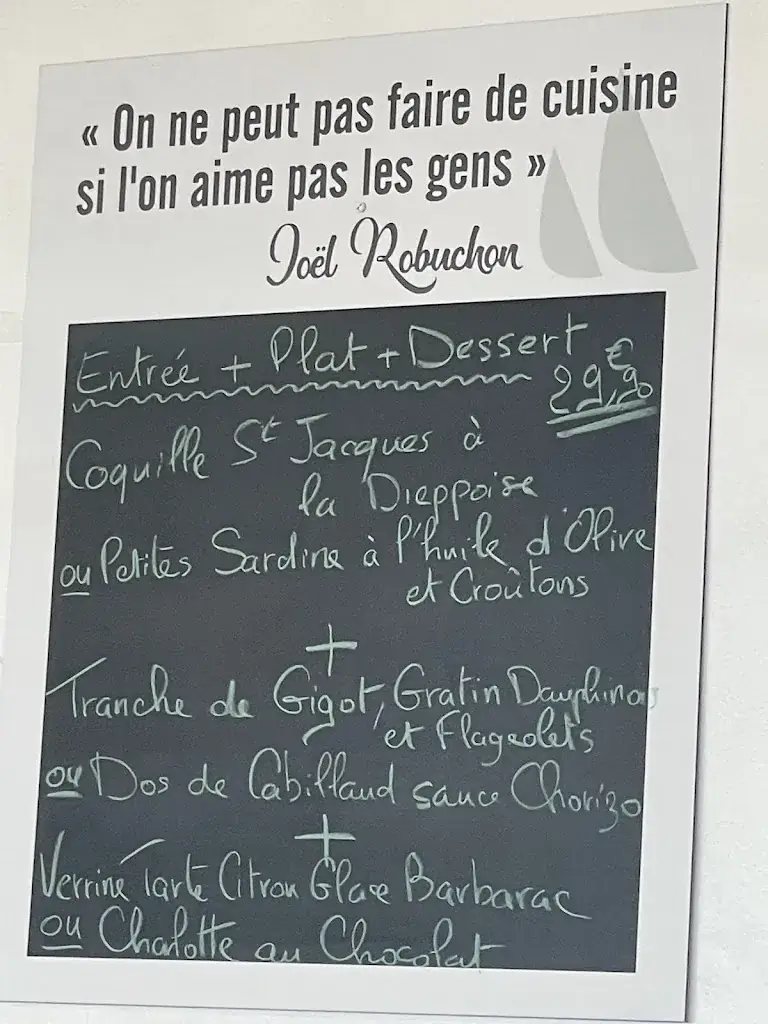 « On ne peut pas faire de cuisine
si l'on aime pas les gens »
Joël Robuchon
Entrée + Plat + Dessert
29,90 €
Coquille St Jacques à
la Dieppoise
ou Petites Sardine à l'huile d'Olive
et Croûtons
+
Tranche de Gigot, Gratin Dauphinois
et Flageolets
ou Dos de Cabillaud sauce Chorizo
+
Verrine Tarte Citron Glace Barbarac
ou Charlotte au Chocolat